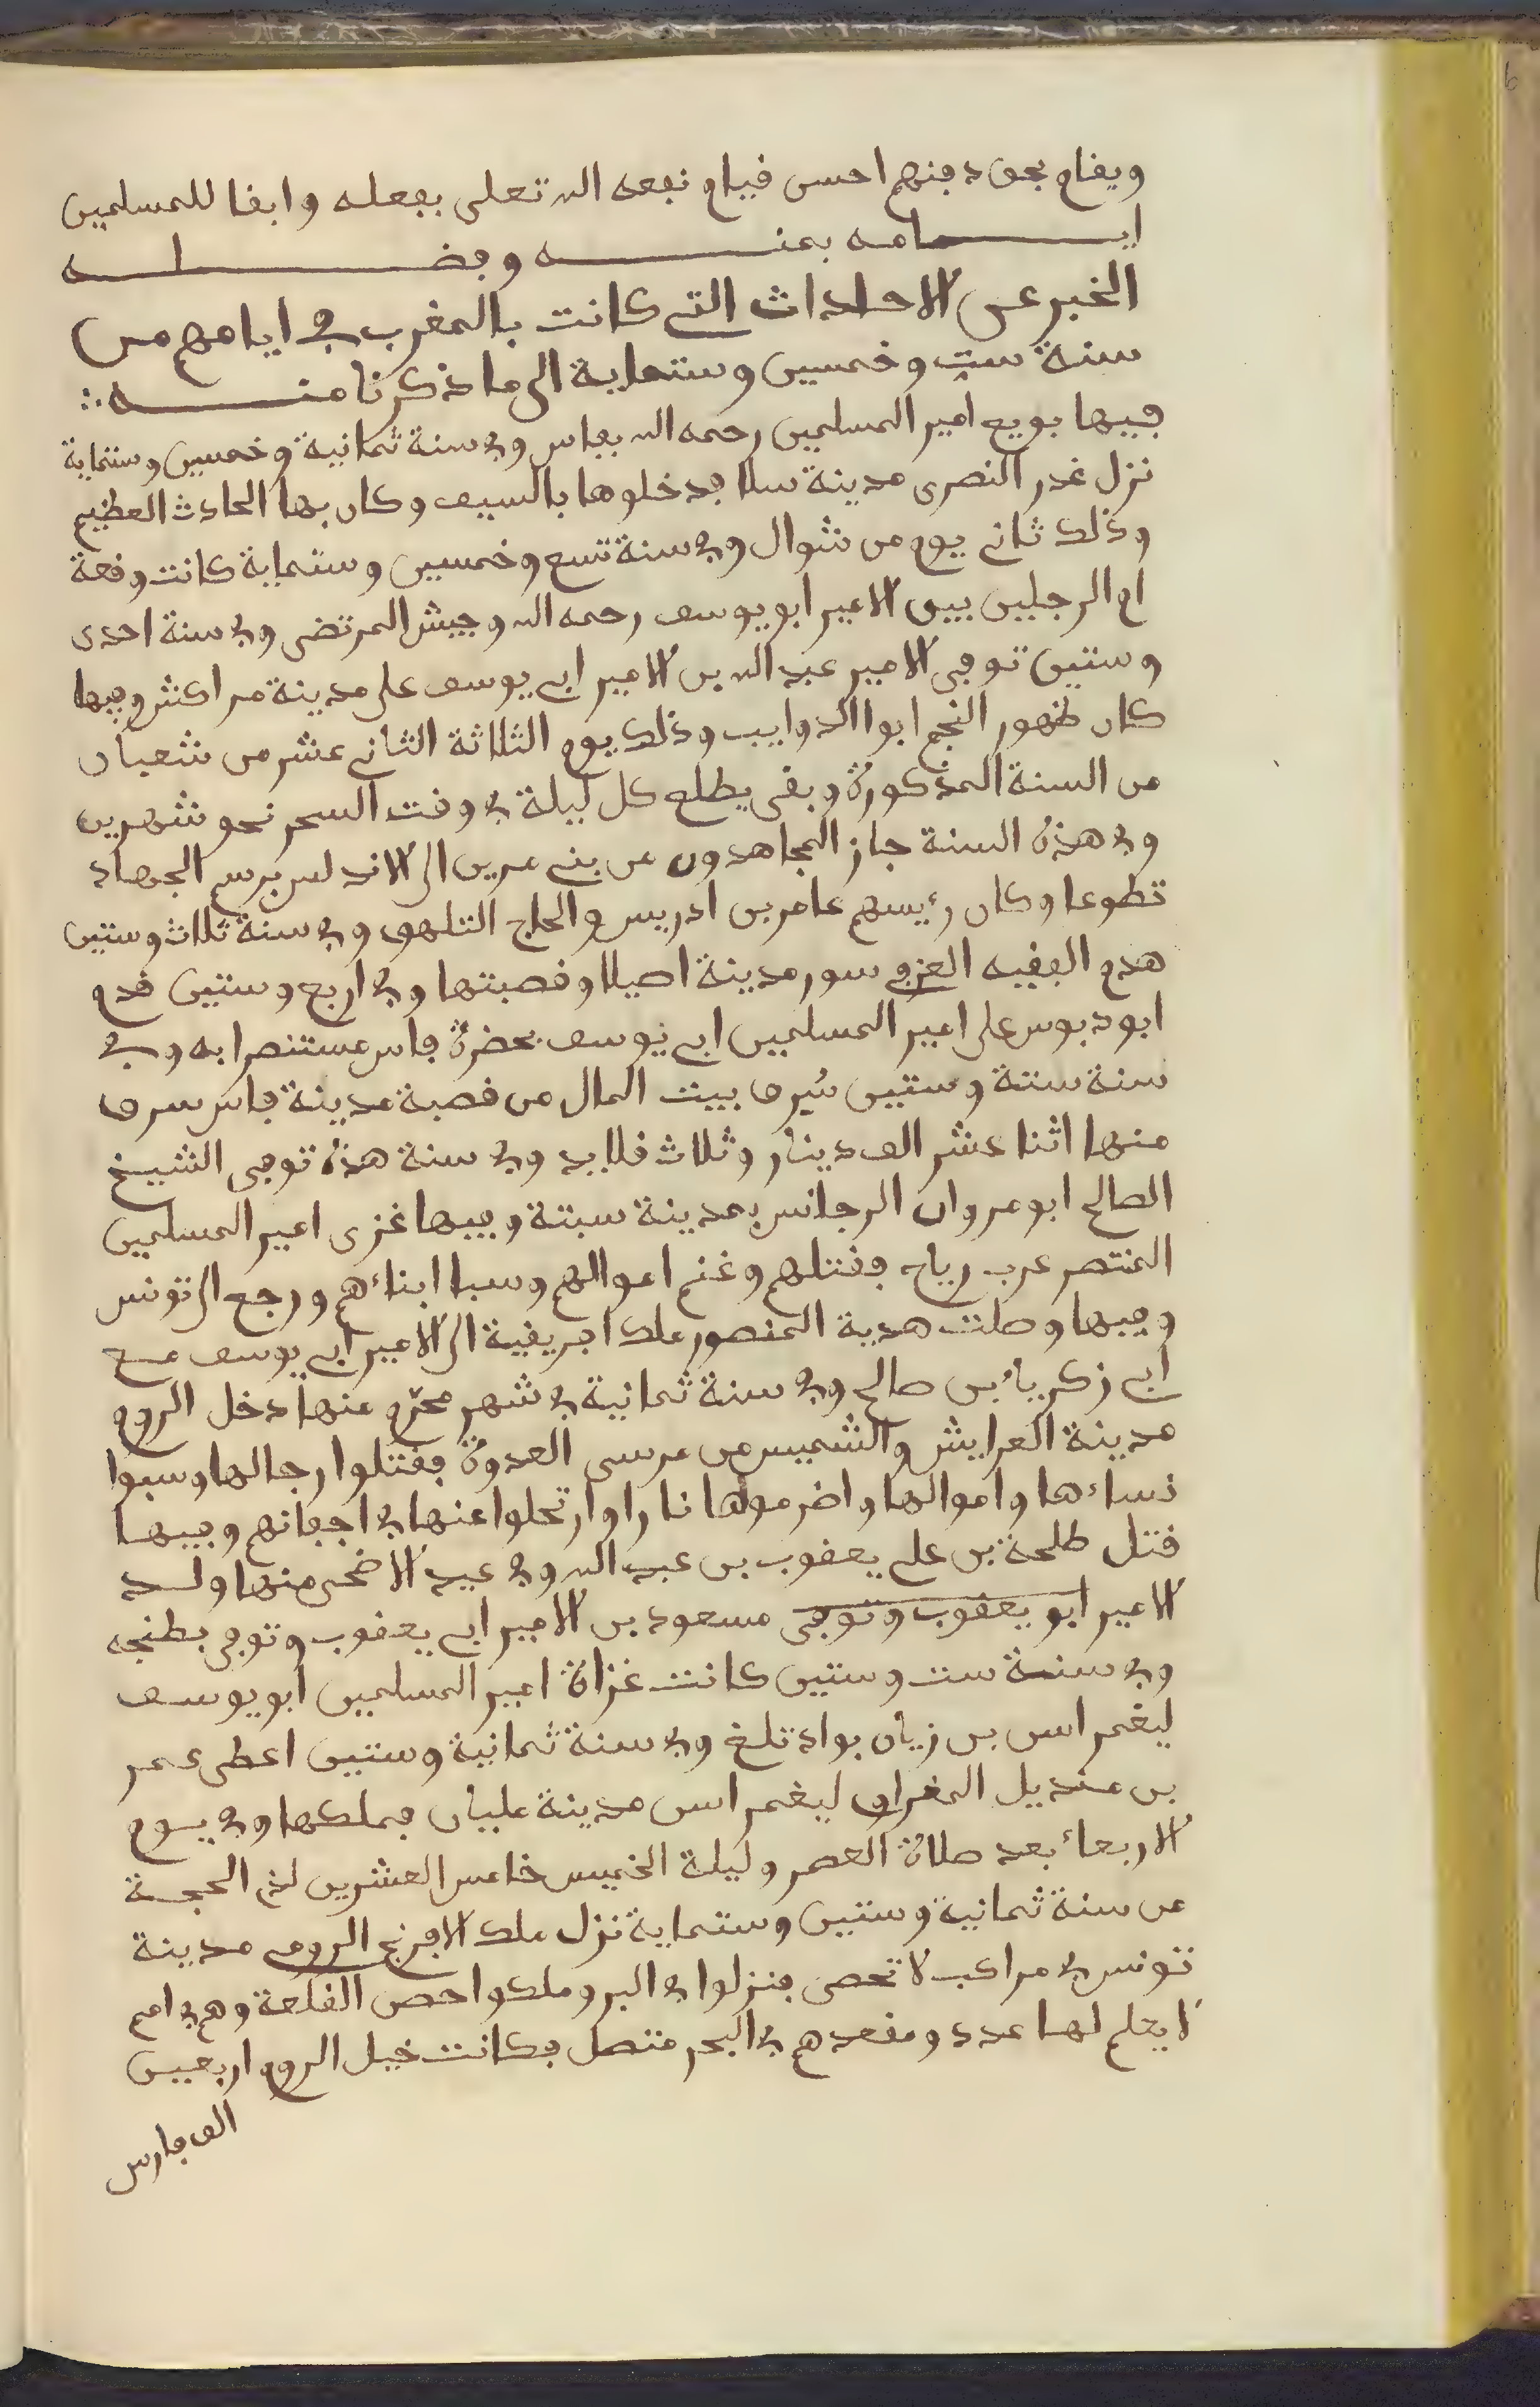 ويقام بحق دفنهم احسن قيام نفعه الله تعلى بفعله وابقا للمسلمين
ايـــامه بمنــــه وفضــــلــــه
الخبر عن الاحداث التي كانت بالمغرب في ايامهم من
سنة ست وخمسين وستماية الى ما ذكرنا منــــه ∴
فيها بويع امير المسلمين رحمه الله بفاس وفي سنة ثمانية وخمسين وستماية
نزل غدر النصرى مدينة سلا فدخلوها بالسيف وكان بها الحادث العظيم
وذلك ثاني يوم من شوال وفي سنة تسع وخمسين وستماية كانت وقعة
ام الرجلين بين الامير ابو يوسف رحمه الله وجيش المرتضى وفي سنة احدى
وستين توفي الامير عبد الله بن الامير ابي يوسف على مدينة مراكش وفيها
كان ظهور النجم ابوا الدوايب وذلك يوم الثلاثة الثاني عشر من شعبان
من السنة المذكورة وبقى يطلع كل ليلة في وقت السحر نحو شهرين
وفي هذه السنة جاز المجاهدون من بني مرين الى الاندلس برسم الجهاد
تطوعا وكان رئيسهم عامر بن ادريس والحاج التلهوي وفي سنة ثلاث وستين
هدم الفقيه العزفي سور مدينة اصيلا وقصبتها وفي اربع وستين قدم
ابو دبوس على امير المسلمين ابي يوسف بحضرة فاس مستنصرا به وفي
سنة ستة وستين سُرق بيت المال من قصبة مدينة فاس سرق
منها اثنا عشر الف دينار وثلاث قلايد وفي سنة هذه توفي الشيخ
الصالح ابو مروان الرجانس بمدينة سبتة وفيها غزى امير المسلمين
المنتصر عرب رياح فقتلهم وغنم اموالهم وسبا ابناءهم ورجع الى تونس
وفيها وصلت هدية المنصور ملك افريقية الى الامير ابي يوسف مع
ابي زكرياء بن صالح وفي سنة ثمانية في شهر محرّم منها دخل الروم
مدينة العرايش والشميس من مرسى العدوة فقتلوا رجالها وسبوا
نساءها واموالها واضرموها نارا وارتحلوا عنها في اجفانهم وفيها
قتل طلحة بن علي يعقوب بن عبد الله وفي عيد الاضحى منها ولد
الامير ابو يعقوب وتوفي مسعود بن الامير ابي يعقوب وتوفي بطنجه
وفي سنة ست وستين كانت غزاة امير المسلمين ابو يوسف
ليغمراس بن زيان بواد تلغ وفي سنة ثمانية وستين اعطى عمر
بن منديل المغراوي ليغمراس مدينة مليان فملكها وفي يوم
الاربعاء بعد صلاة العصر وليلة الخميس خامس العشرين لذي الحجة
من سنة ثمانية وستين وستماية نزل ملك الافرنج الرومي مدينة
تونس في مراكب لا تحصى فنزلوا في البر وملكوا حصن القلعة وهم في امم
لا يعلم لها عدد ومقعدهم في البحر متصل فكانت خيل الروم اربعين
الف فارس